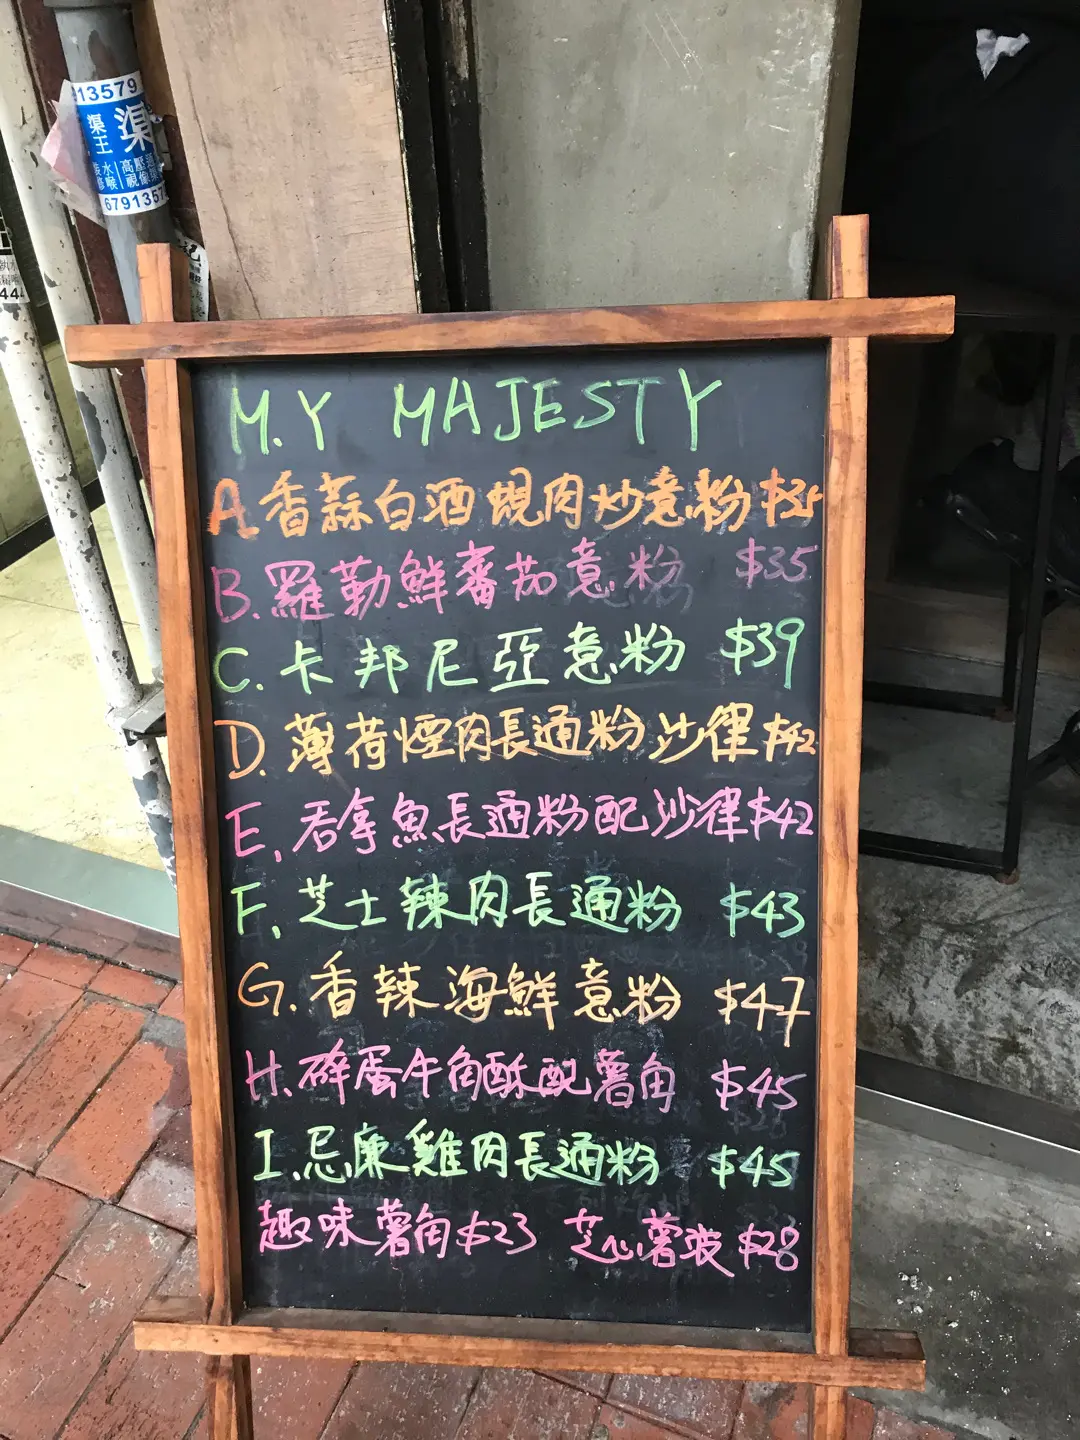 913579
渠王
渠
水喉
高壓通
視像
6791357
444
M.Y MAJESTY
A.香蒜白酒蜆肉炒意粉 $35
B.羅勒鮮蕃茄意粉 $35
C.卡邦尼亞意粉 $39
D.薄荷煙肉長通粉沙律 $42
E.吞拿魚長通粉配沙律 $42
F.芝士辣肉長通粉 $43
G.香辣海鮮意粉 $47
H.碎蛋牛角酥配薯角 $45
I.忌廉雞肉長通粉 $45
趣味薯角 $23 芝心薯波 $28